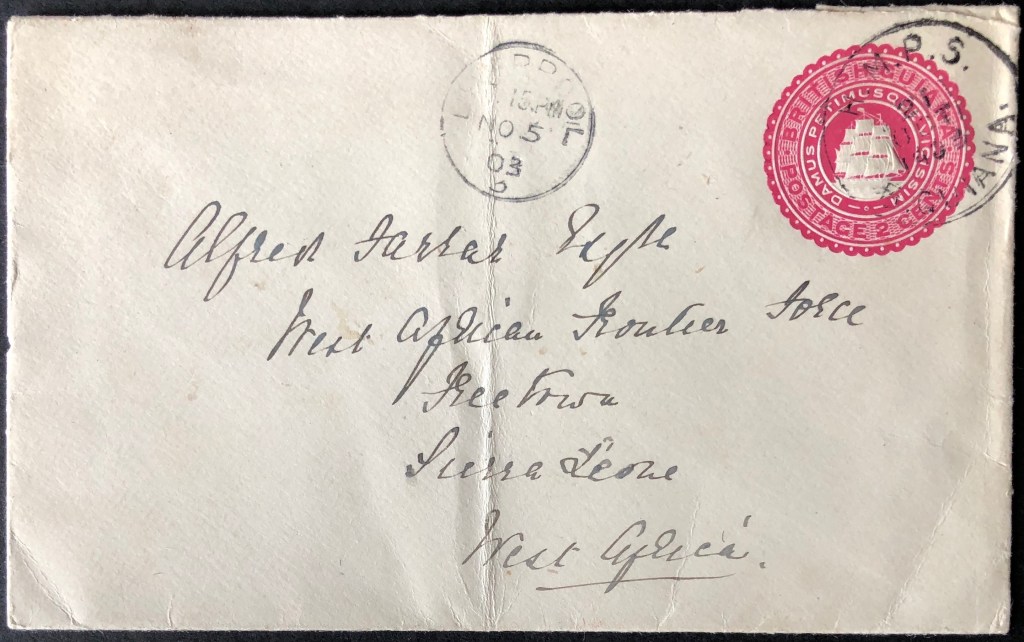 LIVERPOOL
15.PM
NO 5
03
6
T.P.S.
GUIANA.
BRITISH GUIANA
DAMUS PETIMUSQUE VICISSIM
POSTAGE 2 CENTS
Alfred Farrar Esqre
West African Frontier Force
Freetown
Sierra Leone
West Africa.